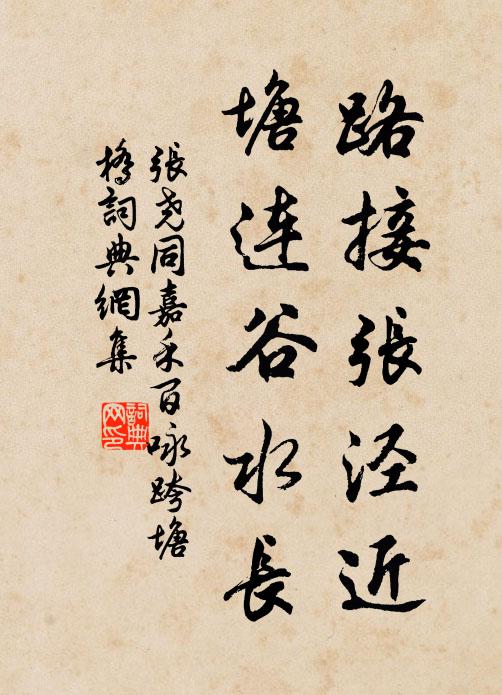 路接張泾近
塘連谷水長
張尧同嘉禾百咏跨塘
橋詞典網集
詞典
网印